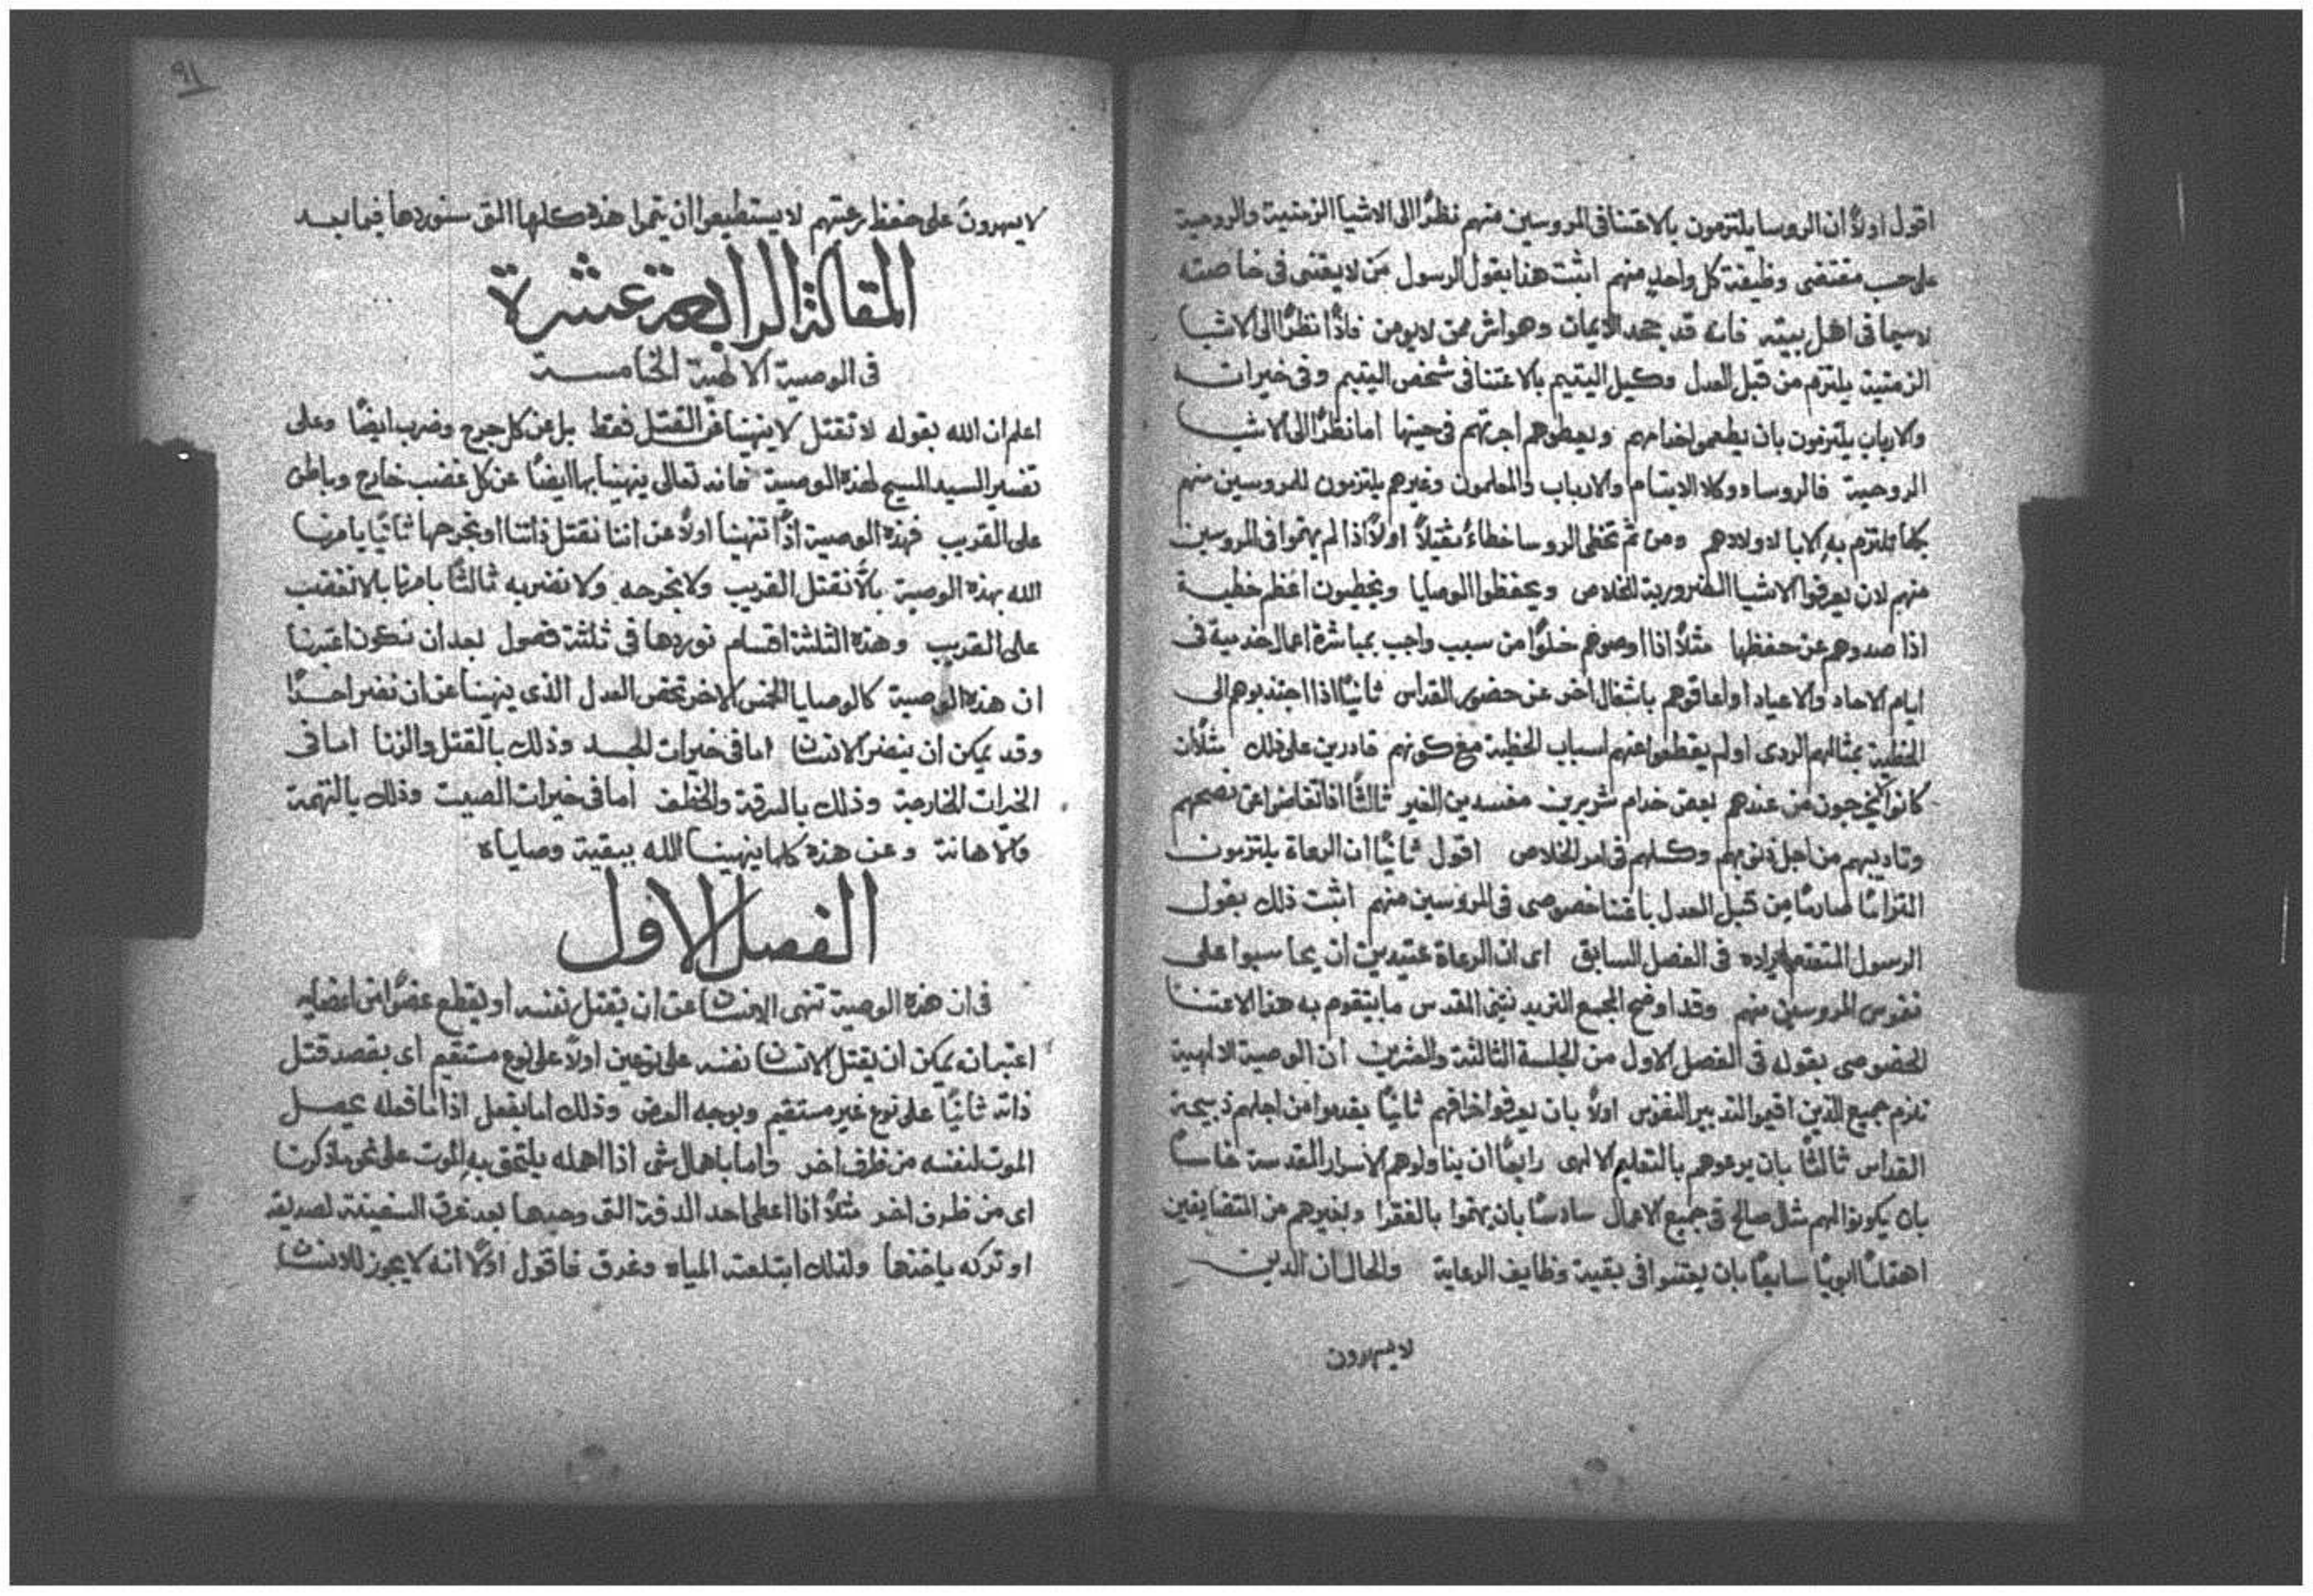 اقول اولاً ان الروسا يلتزمون بالاعتنا فى المروسين منهم نظرًا الى الاشيا الزمنية والروحية
على حسب مقتضى وظيفة كل واحدٍ منهم اثبت هذا بقول الرسول مَن لا يعتنى فى خاصته
لاسيما فى اهل بيته فانه قد جحد الايمان وهو اشر ممن لا يومن فاذًا نظرًا الى الاشيا
الزمنية يلتزم من قبل العدل وكيل اليتيم بالاعتنا فى شخص اليتيم وفى خيراته
والارباب يلتزمون بان يطعموا خدامهم ويعطوهم اجرتهم فى حينها اما نظرًا الى الاشيا
الروحية فالروسا ووكلا الايتام والارباب والمعلمون وغيرهم يلتزمون للمروسين منهم
بكلما تلتزم به الابا لاولادهم ومن ثم تخطى الروسا خطاءً ثقيلاً اولاً اذا لم يهتموا فى المروسين
منهم لان يعرفوا الاشيا الضرورية للخلاص ويحفظوا الوصايا ويخطيون اعظم خطية
اذا صدوهم عن حفظها مثلاً اذا اوصوهم خلوًا من سبب واجب بمباشرة اعمال خدمية فى
ايام الاحاد والاعياد او اعاقوهم باشغال اخر عن حضور القداس ثانيًا اذا اجتذبوهم الى
الخطية بمثالهم الردى او لم يقطعوا عنهم اسباب الخطية مع كونهم قادرين على ذلك مثلاً ان
كانوا لا يخرجون من عندهم بعض خدام شريرين مفسدين الغير ثالثًا اذا تغاضوا عن نصحهم
وتاديبهم من اجل ذنوبهم وكسلهم فى امر الخلاص اقول ثانيًا ان الرعاة يلتزمون
التزامًا صارمًا من قبل العدل باعتنا خصوصى فى المروسين منهم اثبت ذلك بقول
الرسول المتقدم ايراده فى الفصل السابق اى ان الرعاة عتيدين ان يحاسبوا على
نفوس المروسين منهم وقد اوضح المجمع التريدنتينى المقدس ما يتقوم به هذا الاعتنا
الخصوصى بقوله فى الفصل الاول من الجلسة الثالثة والعشرين ان الوصية الالهية
تلزم جميع الذين اقيموا لتدبير النفوس اولاً بان يعرفوا خرافهم ثانيًا يقدموا من اجلهم ذبيحة
القداس ثالثًا بان يرعوهم بالتعليم الالهى رابعًا ان يناولوهم الاسرار المقدسة خامسًا
بان يكونوا لهم مثال صالح فى جميع الاعمال سادسًا بان يهتموا بالفقرا وبغيرهم من المتضايقين
اهتمامًا ابويًا سابعًا بان يعتنوا فى بقية وظايف الرعاية والحال ان الذين
لا يسهرون
٩١
لا يسهرون على حفظ رعيتهم لا يستطيعوا ان يتموا هذه كلها التى سنوردها فيما بعد
المقالة الرابعة عشرة
فى الوصية الالهية الخامسة
اعلم ان الله بقوله لا تقتل لا ينهينا عن القتل فقط بل عن كل جرح وضرب ايضًا وعلى
تفسير السيد المسيح لهذه الوصية فانه تعالى ينهينا بها ايضًا عن كل غضب خارج وباطن
على القريب فهذه الوصية اذًا تنهينا اولاً عن اننا نقتل ذاتنا او نجرحها ثانيًا يامرنا
الله بهذه الوصية بالاّ نقتل القريب ولا نجرحه ولا نضربه ثالثًا يامرنا بالا نغضب
على القريب وهذه الثلثة اقسام نوردها فى ثلثة فصول بعد ان نكون اعتبرنا
ان هذه الوصية كالوصايا الخمس الاخر تخص العدل الذى ينهينا عن ان نضر احدًا
وقد يمكن ان ينضر الانسان اما فى خيرات الجسد وذلك بالقتل والزنا اما فى
الخيرات الخارجية وذلك بالسرقة والخطف اما فى خيرات الصيت وذلك بالتهمة
والاهانة وعن هذه كلها ينهينا الله ببقية وصاياه
الفصل الاول
فى ان هذه الوصية تنهى الانسان عن ان يقتل نفسه او يقطع عضوًا من اعضايه
اعتبر انه يمكن ان يقتل الانسان نفسه على نوعين اولاً على نوع مستقيم اى بقصد قتل
ذاته ثانيًا على نوع غير مستقيم وبوجه العرض وذلك اما بفعل اذا ما فعله يحصل
الموت لنفسه من طرف اخر واما باهمال شى اذا اهمله يلتحق به الموت على نحو ما ذكرنا
اى من طرف اخر مثلاً اذا اعطى احد الدفة التى وجدها بعد غرق السفينة لصديقه
او تركه ياخذها ولذلك ابتلعته المياه وغرق فاقول اولاً انه لا يجوز للانسان